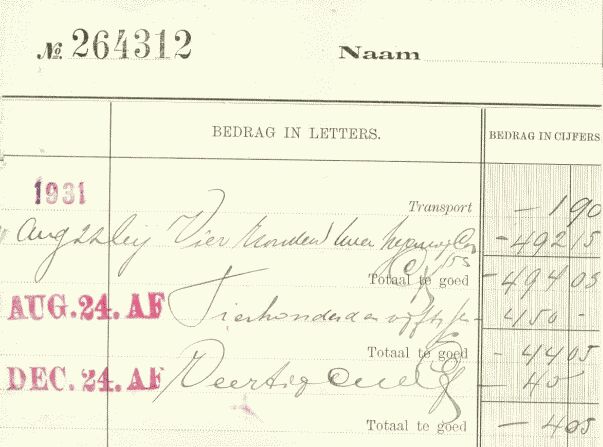 № 264312 Naam
BEDRAG IN LETTERS. BEDRAG IN CIJFERS
1931 Transport — 1 90
Aug 22 bij Vier honderd twee negentig - 492 15
Totaal te goed - 494 05
AUG. 24. AF Vierhonderd en vijftig - 450 -
Totaal te goed - 44 05
DEC. 24. AF Veertig - 40
Totaal te goed - 4 05